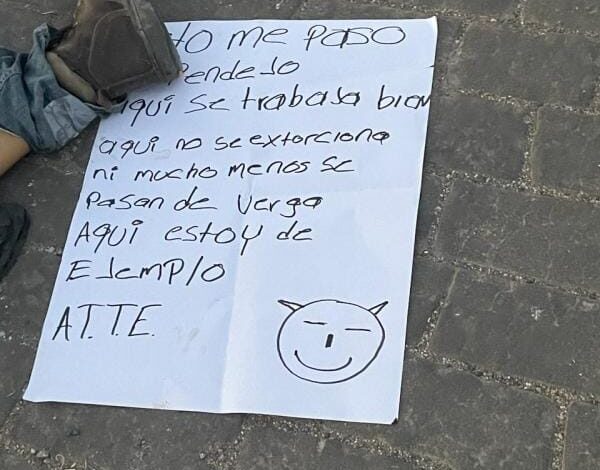 to me paso
Pendejo
aqui se trabaja bien
aqui no se extorciona
ni mucho menos se
Pasan de verga
AQUI estoy de
EJEMPLO
ATTE.